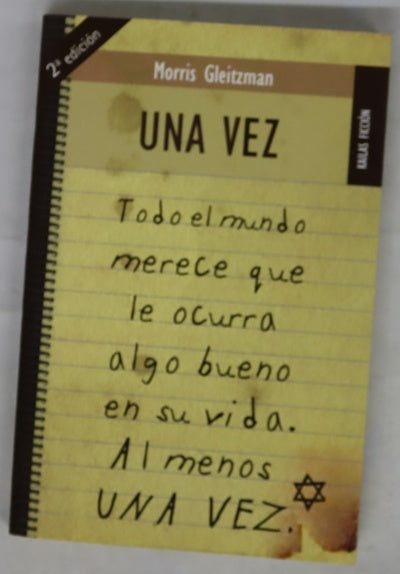 2ª edición
Morris Gleitzman
UNA VEZ
KAILAS FICCIÓN
Todo el mundo
merece que
le ocurra
algo bueno
en su vida.
Al menos
UNA VEZ.